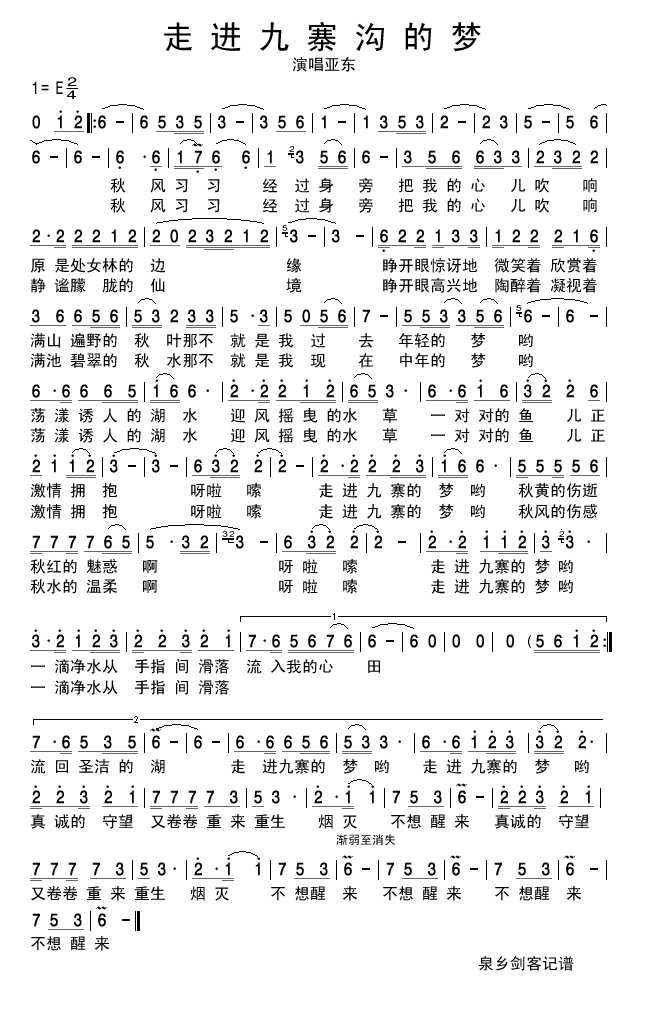 走进九寨沟的梦
演唱亚东
1= E 2/4
0 1 2 ‖: 6 – | 6 5 3 5 | 3 – | 3 5 6 | 1 – | 1 3 5 3 | 2 – | 2 3 | 5 – | 5 6 |
6 – | 6 – | 6 · 6 | 1 7 6 6 | 1 2 3 5 6 | 6 – | 3 5 6 | 6 3 3 | 2 3 2 2 |
秋 风 习 习 经 过 身 旁 把 我 的 心 儿 吹 响
秋 风 习 习 经 过 身 旁 把 我 的 心 儿 吹 响
2 · 2 2 2 1 2 | 2 0 2 3 2 1 2 | 5 3 – | 3 – | 6 2 2 1 3 3 | 1 2 2 2 1 6 |
原 是处女林的 边 缘 睁开眼惊讶地 微笑着 欣赏着
静 谧朦 胧的 仙 境 睁开眼高兴地 陶醉着 凝视着
3 6 6 5 6 | 5 3 2 3 3 | 5 · 3 | 5 0 5 6 | 7 – | 5 5 3 3 5 6 | 5 6 – | 6 – |
满山 遍野的 秋 叶那不 就 是 我 过 去 年轻的 梦 哟
满池 碧翠的 秋 水那不 就 是 我 现 在 中年的 梦 哟
6 · 6 6 6 5 | 1 6 6 · | 2 · 2 2 1 2 | 6 5 3 · | 6 · 6 1 6 | 3 2 2 6 |
荡 漾 诱 人 的 湖 水 迎 风 摇 曳 的水 草 一 对 对的 鱼 儿 正
荡 漾 诱 人 的 湖 水 迎 风 摇 曳 的水 草 一 对 对的 鱼 儿 正
2 1 1 2 | 3 – | 3 – | 6 3 2 2 | 2 – | 2 · 2 2 2 3 | 1 6 6 · | 5 5 5 5 6 |
激情 拥 抱 呀啦 嗦 走 进 九 寨的 梦 哟 秋黄的伤逝
激情 拥 抱 呀啦 嗦 走 进 九 寨的 梦 哟 秋风的伤感
7 7 7 7 6 5 | 5 · 3 2 | 3 2 3 – | 6 3 2 2 | 2 – | 2 · 2 1 1 2 | 3 2 3 · |
秋红的 魅惑 啊 呀 啦 嗦 走 进 九寨的 梦 哟
秋水的 温柔 啊 呀 啦 嗦 走 进 九寨的 梦 哟
1
3 · 2 1 2 3 | 2 2 3 2 1 | 7 · 6 5 6 7 6 | 6 – | 6 0 | 0 0 | 0 ( 5 6 1 2 :‖
一 滴净水从 手指 间 滑落 流 入我的心 田
一 滴净水从 手指 间 滑落
2
7 · 6 5 3 5 | 6 – | 6 – | 6 · 6 6 5 6 | 5 3 3 · | 6 · 6 1 2 3 | 3 2 2 · |
流 回 圣洁 的 湖 走 进九寨的 梦 哟 走 进九寨的 梦 哟
2 2 3 2 1 | 7 7 7 7 3 | 5 3 · | 2 · 1 1 | 7 5 3 | 6 – | 2 2 3 2 1 |
真 诚的 守望 又卷卷 重 来 重生 烟 灭 不想 醒 来 真诚的 守望
渐弱至消失
7 7 7 7 3 | 5 3 · | 2 · 1 | 1 1 | 7 5 3 | 6 – | 7 5 3 | 6 – | 7 5 3 | 6 – |
又卷卷 重 来 重生 烟 灭 不 想醒 来 不想醒 来 不 想醒 来
7 5 3 | 6 – ‖
不想 醒 来
泉乡剑客记谱